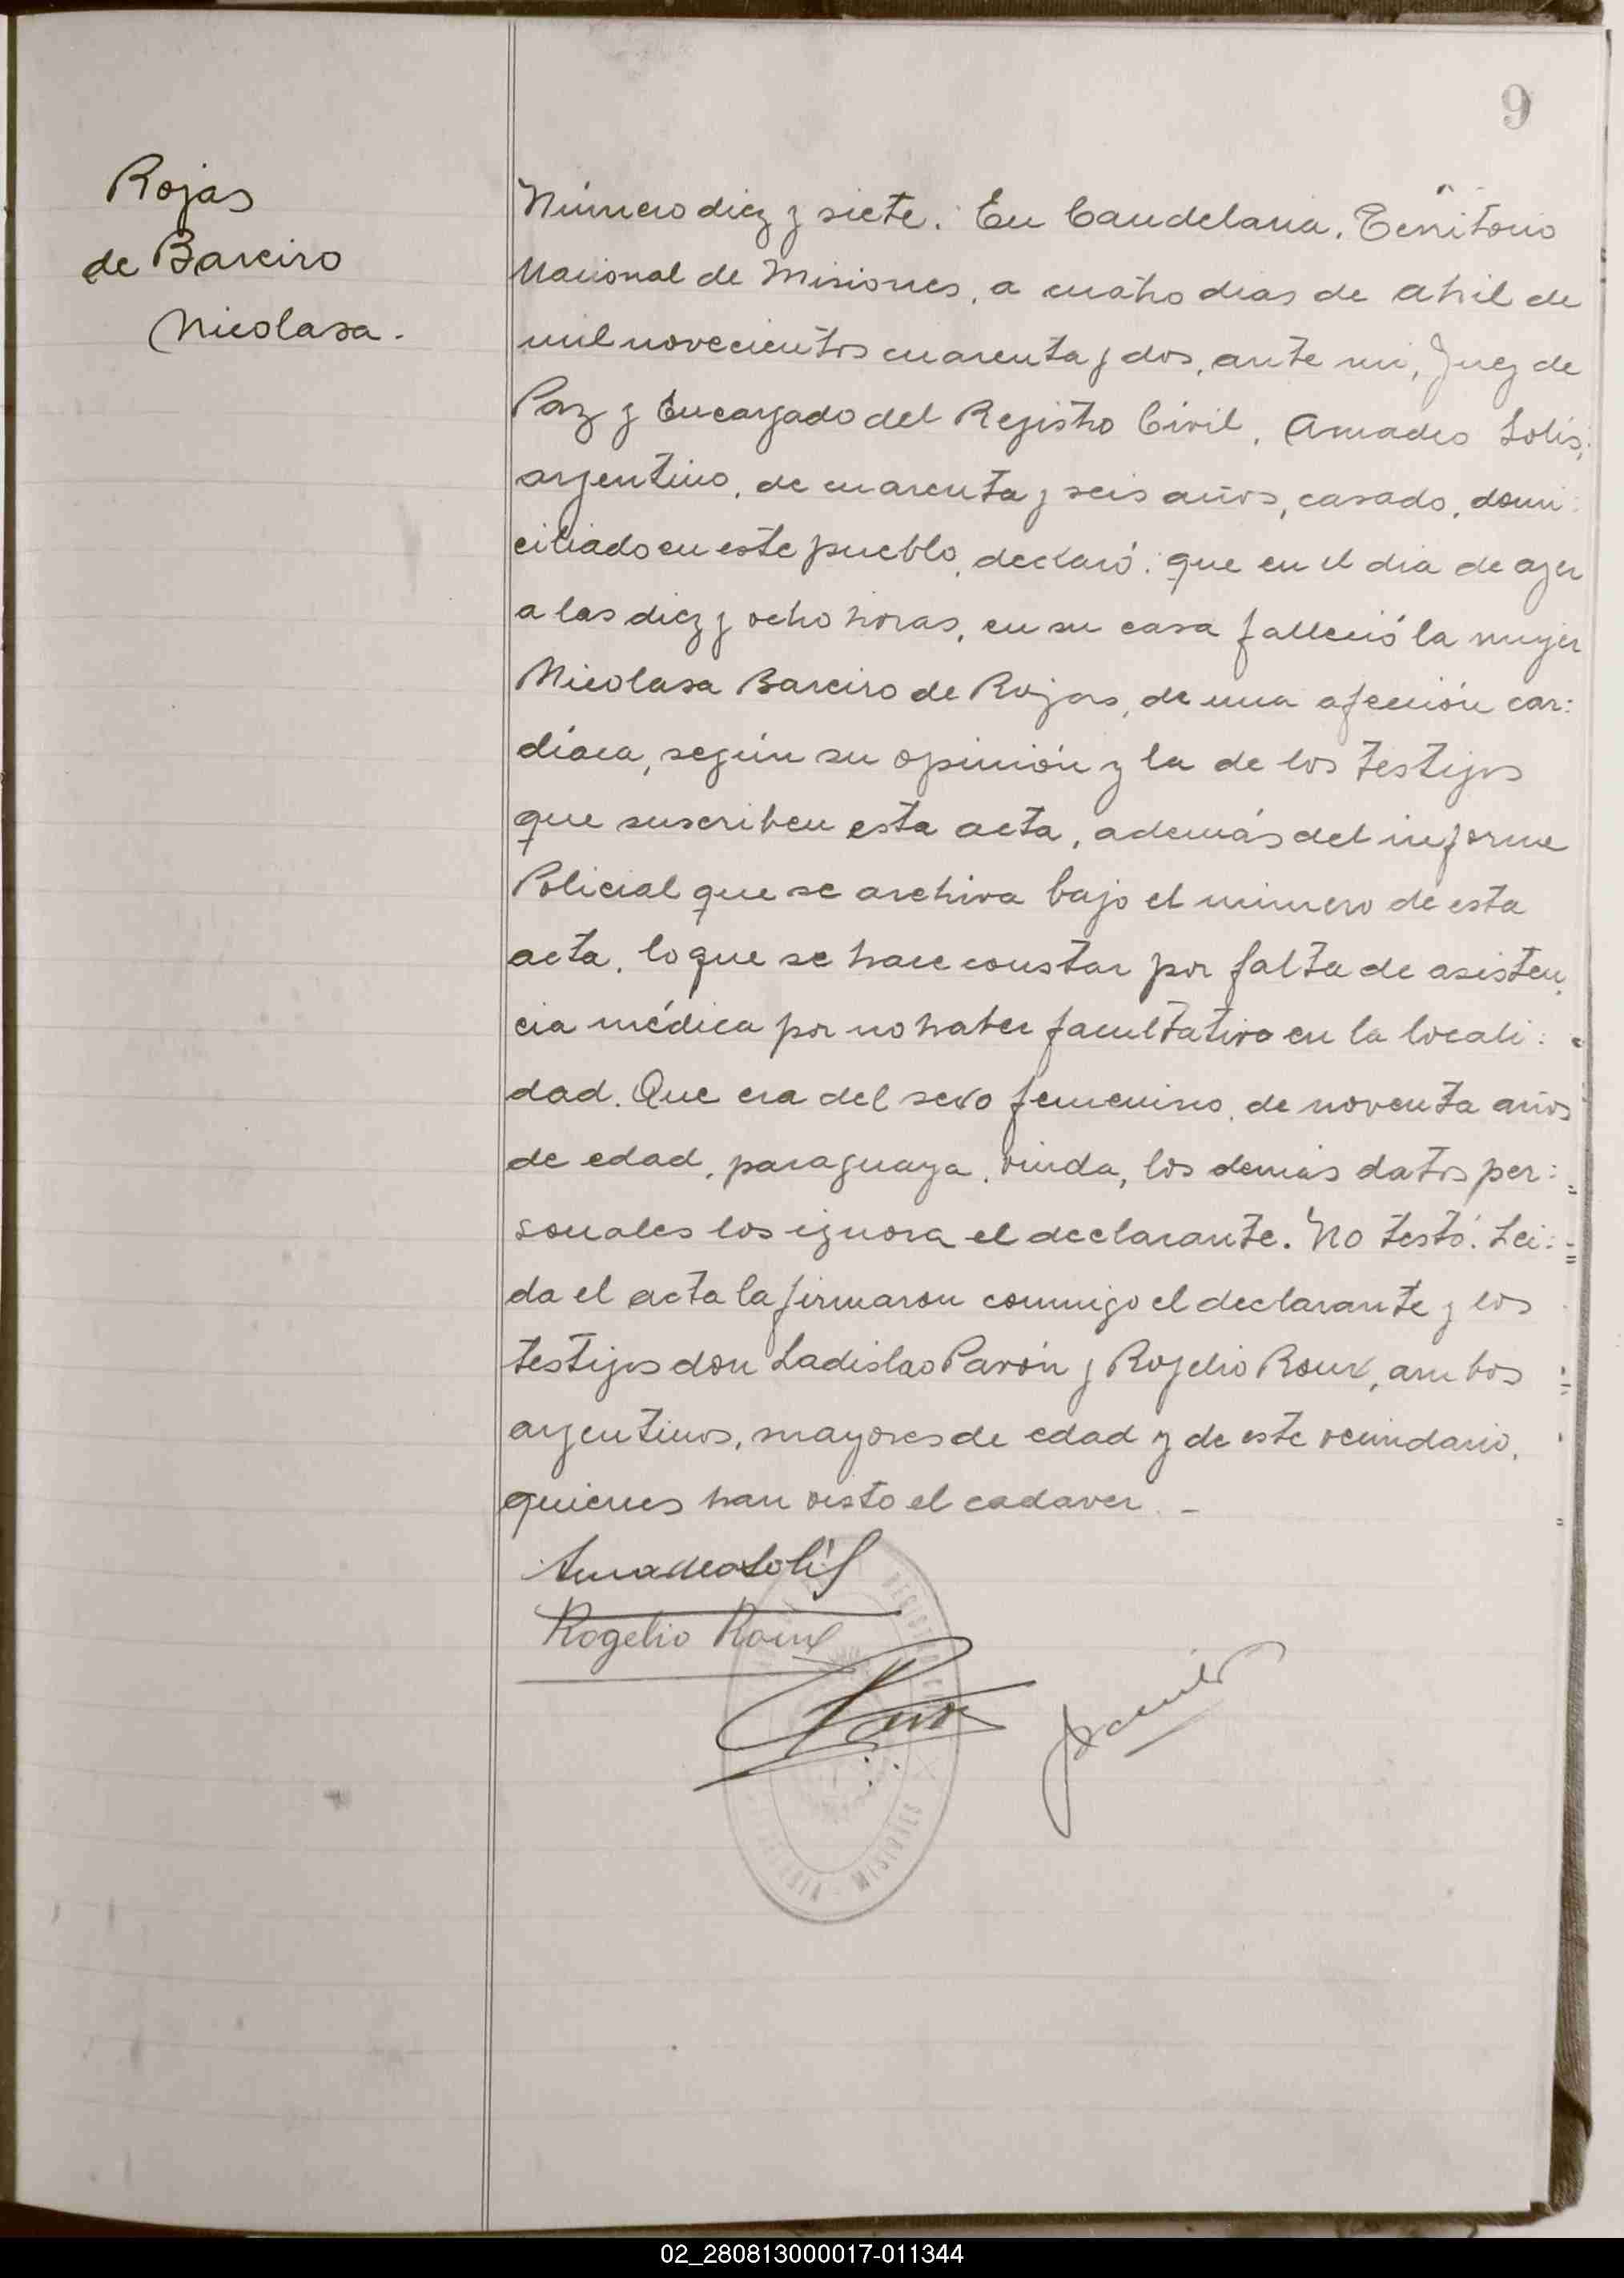 9
Rojas
de Bareiro
Nicolasa.
Número diez y siete. En Candelaria, Territorio
Nacional de Misiones, a cuatro dias de Abril de
mil novecientos cuarenta y dos, ante mi, Juez de
Paz y Encargado del Registro Civil, Amadeo Solis,
argentino, de cuarenta y seis años, casado, domi:
ciliado en este pueblo, declaró: que en el dia de ayer
a las diez y ocho horas, en su casa falleció la mujer
Nicolasa Bareiro de Rojas, de una afección car:
díaca, según su opinión y la de los testigos
que suscriben esta acta, además del informe
Policial que se archiva bajo el número de esta
acta, lo que se hace constar por falta de asisten:
cia médica por no haber facultativo en la locali:
dad. Que era del sexo femenino, de noventa años
de edad, paraguaya, viuda, los demás datos per:
sonales los ignora el declarante. No testó. Lei:
da el acta la firmaron conmigo el declarante y los
testigos don Ladislao Pavón y Rogelio Roux, ambos
argentinos, mayores de edad y de este vecindario,
quienes han visto el cadaver. -
Amadeo Solís
Rogelio Roux
REGISTRO
MISIONES
02_280813000017-011344